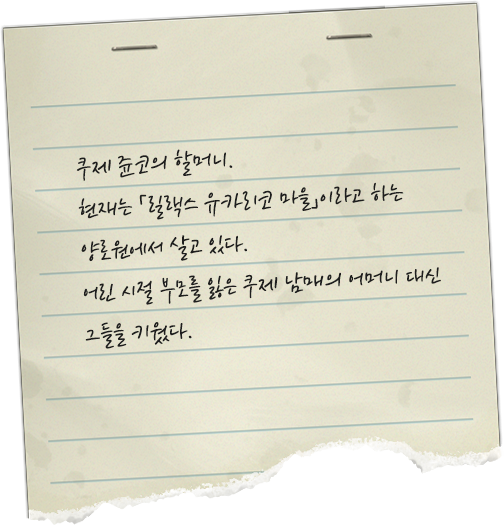 쿠제 쥰코의 할머니.
현재는 「릴랙스 유카리코 마을」이라고 하는
양로원에서 살고 있다.
어린 시절 부모를 잃은 쿠제 남매의 어머니 대신
그들을 키웠다.